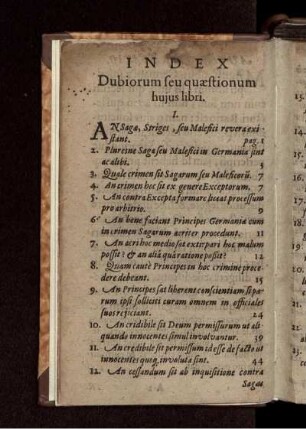 INDEX
Dubiorum seu quæstionum
hujus libri.
I.
AN Sagæ, Striges, seu Malefici revera exi-
stant. pag. 1
2. Plures ne Sagæ seu Malefici in Germania sint
ac alibi.
3. Quale crimen sit Sagarum seu Maleficorũ. 7
4. An crimen hoc sit ex genere Exceptorum. 7
5. An contra Excepta formare liceat processum
pro arbitrio. 9
6. An bene faciant Principes Germaniæ cum
in crimen Sagarum acriter procedunt. 11
7. An acri hoc medio sat extirpari hoc malum
possit? & an aliâ quâ ratione possit? 12
8. Quam cautè Principes in hoc crimine proce-
dere debeant. 15
9. An Principes sat liberent conscientiam si pa-
rum ipsi solliciti curam omnem in officiales
suos rejiciant. 24
10. An credibile sit Deum permissurum ut ali-
quando innocentes simul involvantur. 39
11. An credibile sit permissum id esse de facto ut
innocentes quoq, involuta sint. 44
12. An cessandum sit ab inquisitione contra
Sagas